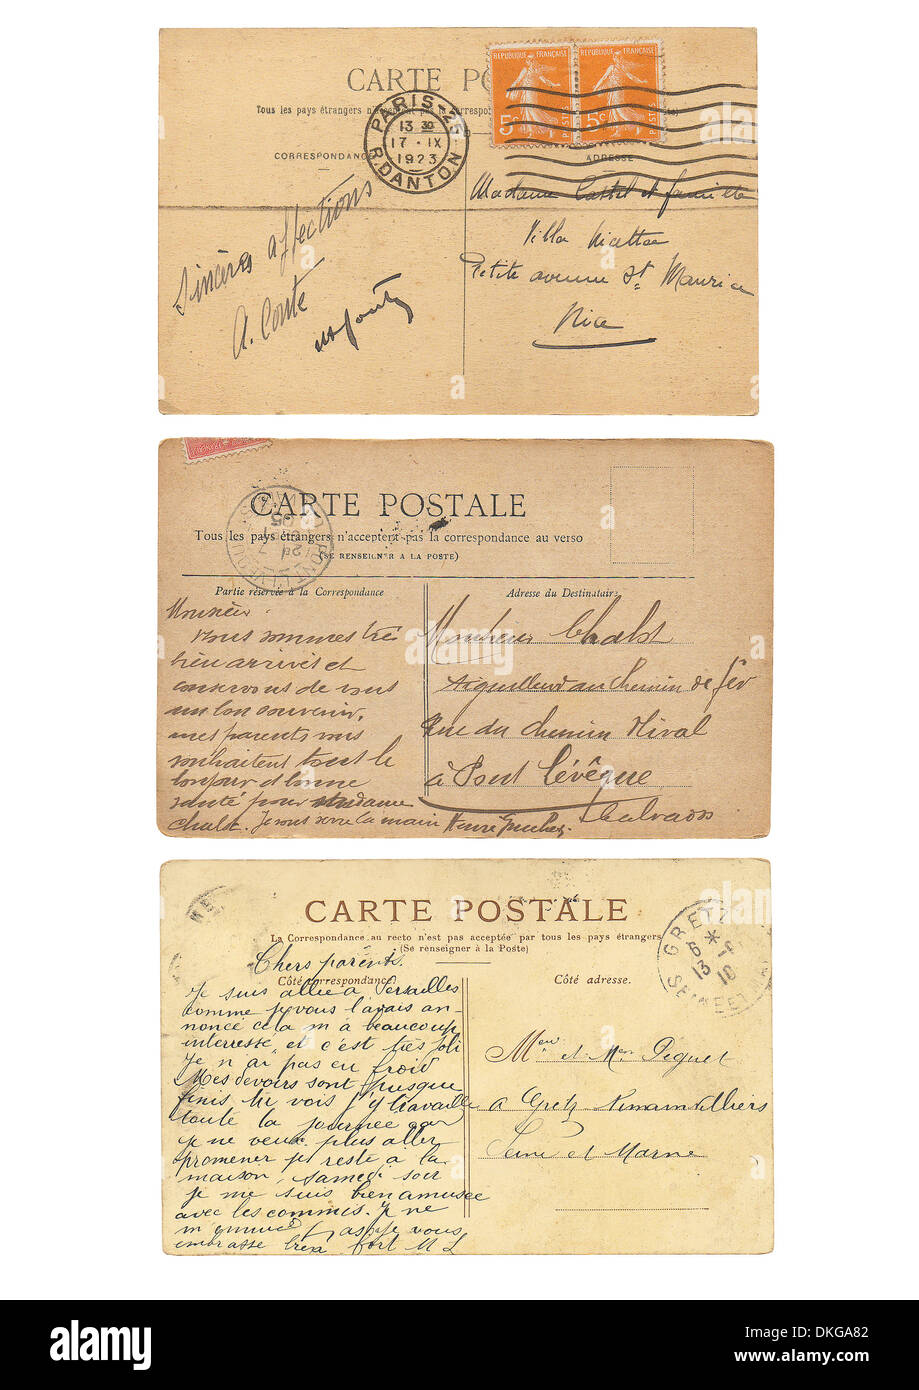 CARTE PO
Tous les pays étrangers n'acceptent pas la correspon
PARIS-25
13 30
17 · IX
1923
R.DANTON
REPUBLIQUE FRANÇAISE
5c
POSTES
REPUBLIQUE FRANÇAISE
5c
POSTES
CORRESPONDANCE
ADRESSE
Sincères affections
A. Conte
Madame Castel et famille
Villa
Petite avenue St Maurice
Nice
CARTE POSTALE
Tous les pays étrangers n'acceptent pas la correspondance au verso
(SE RENSEIGNER A LA POSTE)
Partie réservée à la Correspondance
Adresse du Destinataire
Monsieur
vous sommes très
bien arrivés et
conservons de vous
un bon souvenir,
mes parents vous
souhaitent tout le
bonjour et bonne
santé pour Madame
Chalot. Je vous serre la main Henri
Monsieur Chalot
Aiguilleur au chemin de fer
Rue du chemin
à Pont l'évêque
Calvados
CARTE POSTALE
La Correspondance au recto n'est pas acceptée par tous les pays étrangers
(Se renseigner à la Poste)
Côté correspondance
Côté adresse.
GRETZ
6 *
13 10
SEINE ET
Chers parents.
Je suis allée à Versailles
comme je vous l'avais an-
noncé cela m'a beaucoup
interressé, et c'est très joli
Je n'ai pas eu froid
Mes devoirs sont presque
finis tu vois j'y travaille
toute la journée car
je ne veux plus aller
promener je reste à la
maison, samedi soir
je me suis bien amusée
avec les commis. Je ne
m'ennuie pas je vous
embrasse bien fort M L
Mr et Mme Piquet
a Gretz Armainvilliers
Seine et Marne
alamy
Image ID: DKGA82
www.alamy.com